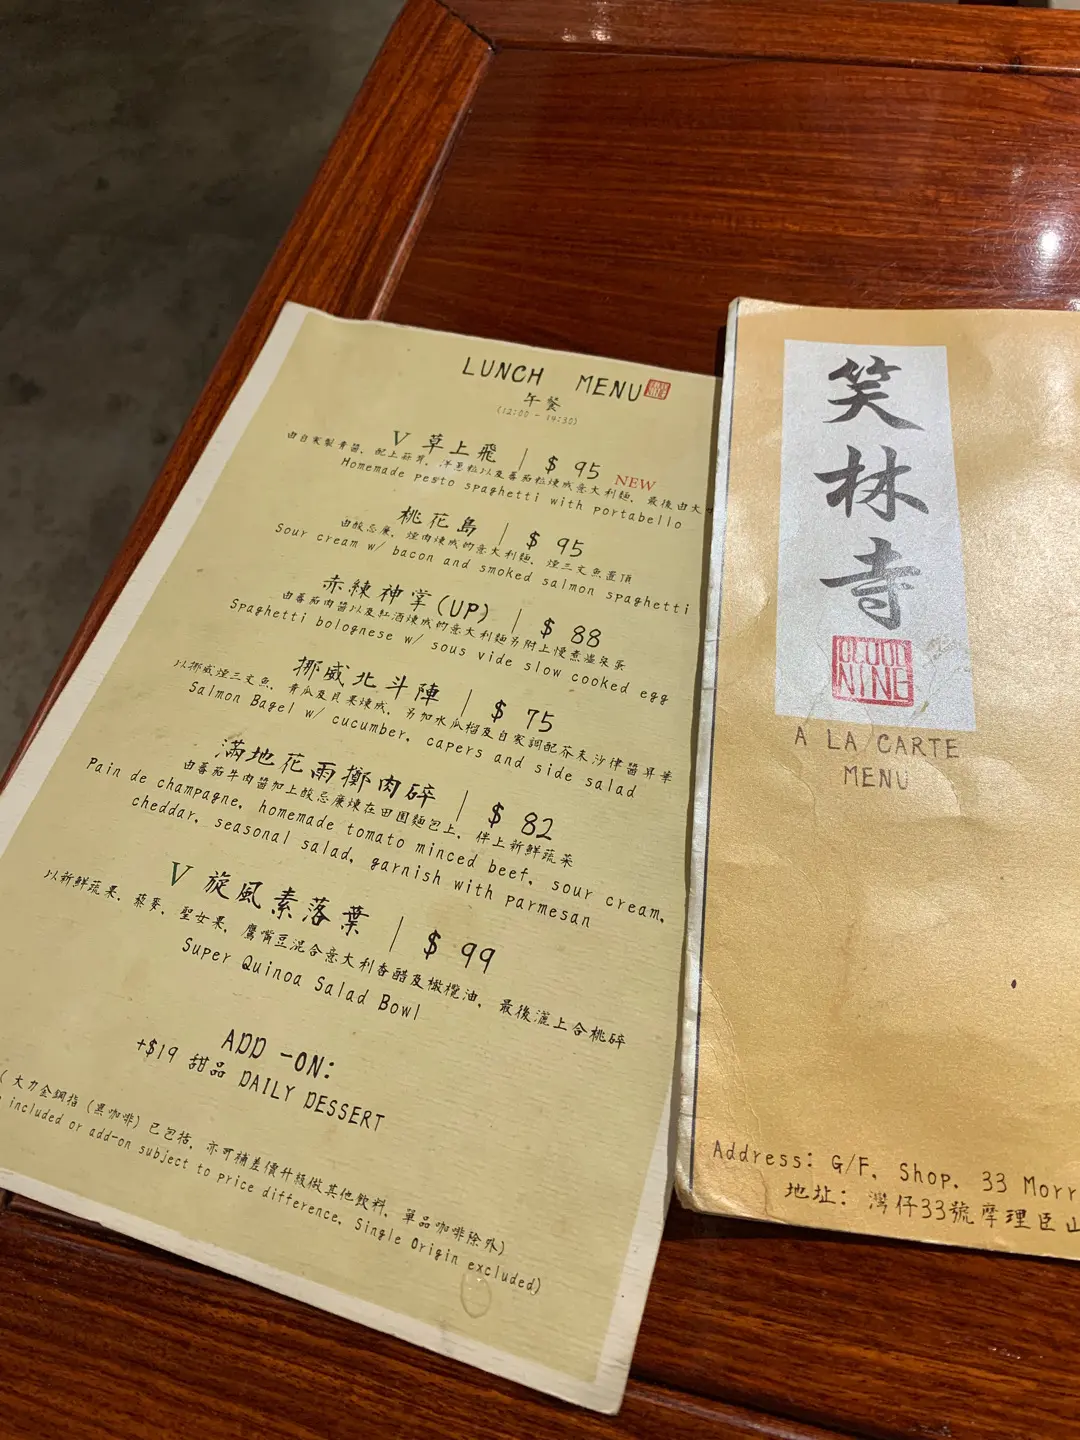 LUNCH MENU
午餐
(12:00 - 14:30)
V 草上飛 | $ 95 NEW
由自家製青醬, 配上蒜蓉, 洋蔥粒以及番茄粒煉成意大利麵, 最後由大
Homemade pesto spaghetti with portabello
桃花島 | $ 95
由酸忌廉, 煙肉煉成的意大利麵, 煙三文魚置頂
Sour cream w/ bacon and smoked salmon spaghetti
赤練神掌(UP) | $ 88
由番茄肉醬以及紅酒煉成的意大利麵另附上慢煮溫泉蛋
Spaghetti bolognese w/ sous vide slow cooked egg
挪威北斗陣 | $ 75
以挪威煙三文魚, 青瓜及貝果煉成, 另加水瓜榴及自家調配芥末沙律醬昇華
Salmon Bagel w/ cucumber, capers and side salad
滿地花雨擲肉碎 | $ 82
由番茄牛肉醬加上酸忌廉煉在田園麵包上, 伴上新鮮蔬菜
Pain de champagne, homemade tomato minced beef, sour cream,
cheddar, seasonal salad, garnish with parmesan
V 旋風素落葉 | $ 99
以新鮮蔬果, 藜麥, 聖女果, 鷹嘴豆混合意大利香醋及橄欖油, 最後灑上合桃碎
Super Quinoa Salad Bowl
ADD -ON:
+$19 甜品 DAILY DESSERT
( 大力金鋼指 (黑咖啡) 已包括, 亦可補差價升級做其他飲料, 單品咖啡除外)
included or add-on subject to price difference, Single Origin excluded)
笑林寺
NING
A LA CARTE
MENU
Address: G/F, Shop, 33 Morr
地址: 灣仔33號摩理臣山